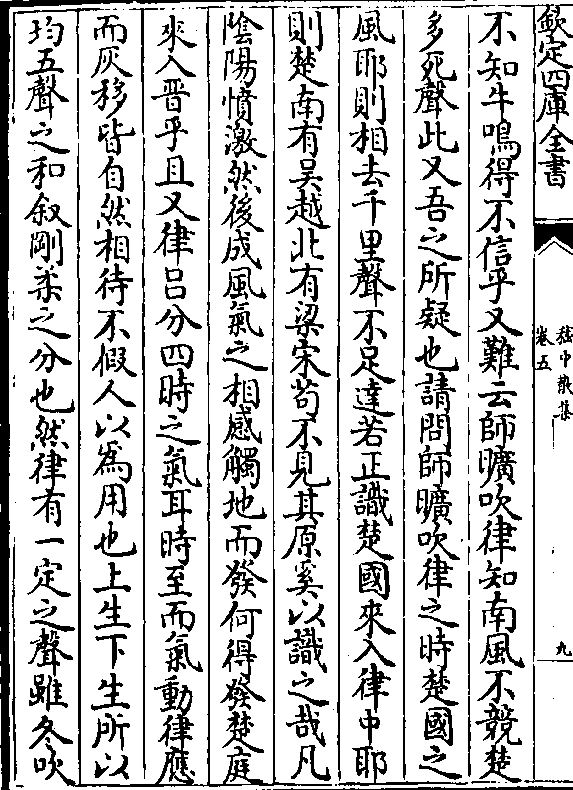 欽定四庫全書
嵇中散集
卷五
九
不知牛鳴得不信乎又難云師曠吹律知南風不競楚
多死聲此又吾之所疑也請問師曠吹律之時楚國之
風耶則相去千里聲不足達若正識楚國來入律中耶
則楚南有吳越北有梁宋苟不見其原奚以識之哉凡
陰陽憤激然後成風氣之相感觸地而發何得發楚庭
來入晉乎且又律呂分四時之氣耳時至而氣動律應
而灰移皆自然相待不假人以為用也上生下生所以
均五聲之和叙剛柔之分也然律有一定之聲雖冬吹